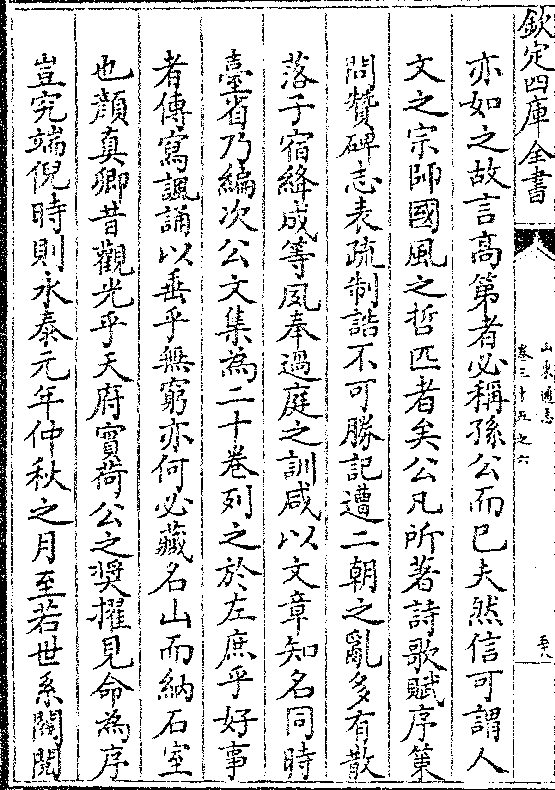 欽定四庫全書
山東通志
卷三十五之六
亦如之故言高第者必稱孫公而已夫然信可謂人
文之宗師國風之哲匹者矣公凡所著詩歌賦序策
問贊碑志表疏制誥不可勝記遭二朝之亂多有散
落子宿絳成等夙奉過庭之訓咸以文章知名同時
臺省乃編次公文集為二十卷列之於左庶乎好事
者傳寫諷誦以垂乎無窮亦何必藏名山而納石室
也顔真卿昔觀光乎天府實荷公之奬擢見命為序
豈究端倪時則永泰元年仲秋之月至若世系閥閲